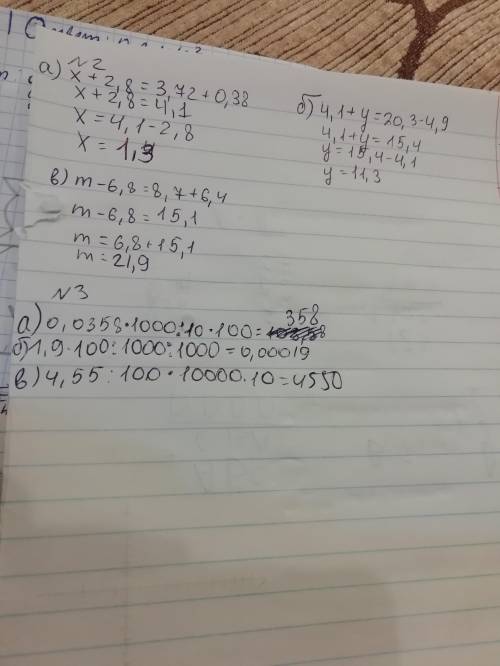 №2
а) x + 2,8 = 3,72 + 0,38
x + 2,8 = 4,1
x = 4,1 - 2,8
x = 1,3
б) 4,1 + y = 20,3 - 4,9
4,1 + y = 15,4
y = 15,4 - 4,1
y = 11,3
в) m - 6,8 = 8,7 + 6,4
m - 6,8 = 15,1
m = 6,8 + 15,1
m = 21,9
№3
а) 0,0358 · 1000 : 10 · 100 = 358
б) 1,9 · 100 : 1000 : 1000 = 0,00019
в) 4,55 : 100 · 10000 · 10 = 4550